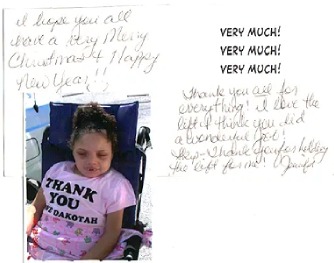 I hope you all
have a very Merry
Christmas & Happy
New Year!!
VERY MUCH!
VERY MUCH!
VERY MUCH!
Thank you all for
everything! I love the
lift. I think you did
a wonderful job!
Thank you for helping
the lift for me!
THANK
YOU
DAKOTAH